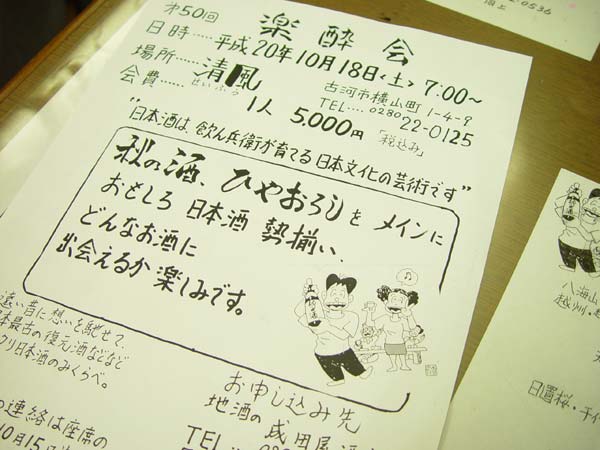 才50回 楽酔会
日時……平成20年10月18日(土) 7:00～
場所……清風
せいふう
古河市横山町1-4-9
TEL…0280 22-0125
会費……1人 5,000円「税込み」
"日本酒は、飲ん兵衛が育てる日本文化の芸術です"
秋の酒、ひやおろしをメインに
おもしろ日本酒勢揃い、
どんなお酒に
出会えるか楽しみです。
遠い昔に想いを馳せて、
本最古の復元酒などなど
クリ日本酒のみくらべ。
の連絡は座席の
10月15日
お申し込み先
地酒の成田屋酒
TEL
0280
2-0536
池上
八海山
越州・越
日置桜・千代